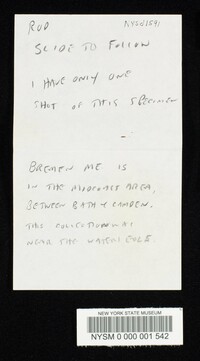 ROD
NYSM 1541
SLIDE TO FOLLOW
I HAVE ONLY ONE
SHOT OF THIS SPECIMEN
BREMEN ME IS
IN THE MIDCOAST AREA,
BETWEEN BATH & CAMDEN.
THE COLLECTION WAS
NEAR THE WATERS EDGE
NEW YORK STATE MUSEUM
NYSM 0 000 001 542